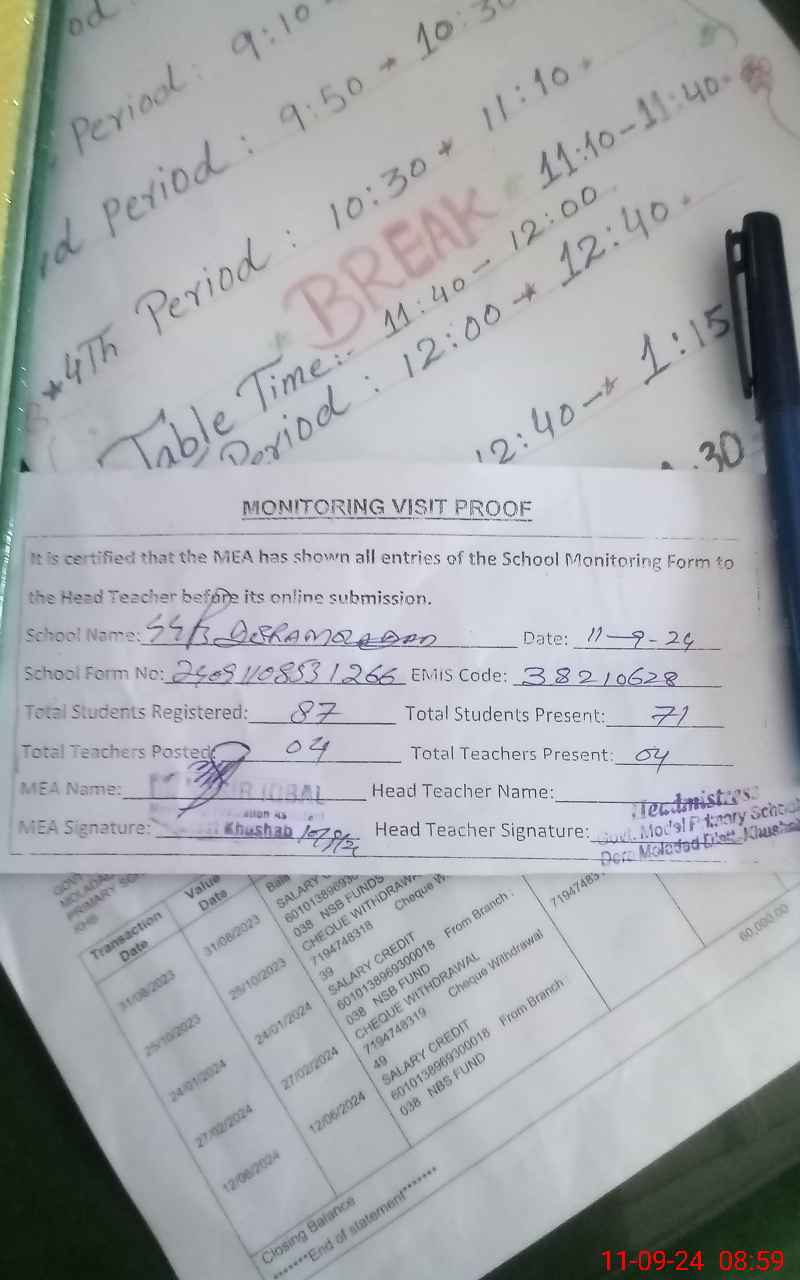 od
Period: 9:10
rd Period: 9:50 → 10:30
*4Th Period: 10:30 → 11:10
BREAK 11:10-11:40
Table Time:- 11:40 - 12:00
Period: 12:00 → 12:40
12:40 → 1:15
.30
MONITORING VISIT PROOF
It is certified that the MEA has shown all entries of the School Monitoring Form to
the Head Teacher before its online submission.
School Name: Date: 11-9-24
School Form No: 24091108531266 EMIS Code: 38210628
Total Students Registered: 87 Total Students Present: 71
Total Teachers Posted 04 Total Teachers Present: 04
MEA Name: IQBAL Head Teacher Name:
Headmistress
MEA Signature: Khushab Head Teacher Signature: Govt. Model Primary School
Dera Moladad Distt. Khushab
PRIMARY
KHB
Transaction Date Value Date
31/08/2023 31/08/2023 SALARY
038 NSB FUNDS
25/10/2023 25/10/2023 CHEQUE WITHDRAWAL Cheque
7194748318
39
24/01/2024 24/01/2024 SALARY CREDIT From Branch :
6010138969300018
038 NSB FUND
27/02/2024 27/02/2024 CHEQUE WITHDRAWAL Cheque Withdrawal
7194748319
49
12/06/2024 12/06/2024 SALARY CREDIT From Branch
6010138969300018
038 NBS FUND
60,000.00
Closing Balance
*******End of statement*******
11-09-24 08:59